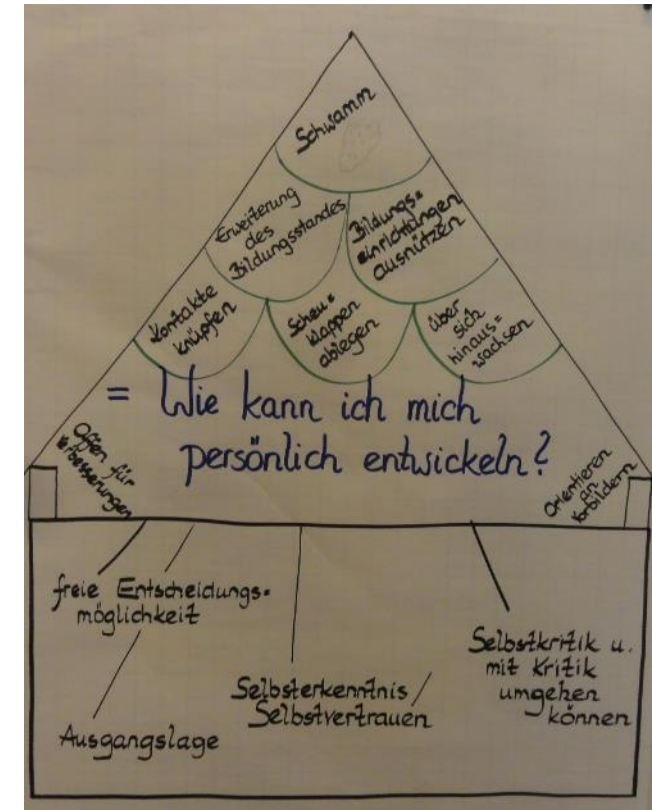 Schwamm
Erweiterung
des
Bildungsstandes
Bildungs=
einrichtungen
ausnützen
Kontakte
knüpfen
Scheu=
klappen
ablegen
über
sich
hinaus=
wachsen
= Wie kann ich mich
persönlich entwickeln?
Offen für
Verbesserungen
Orientieren
an
Vorbildern
freie Entscheidungs=
möglichkeit
Ausgangslage
Selbsterkenntnis /
Selbstvertrauen
Selbstkritik u.
mit Kritik
umgehen
können